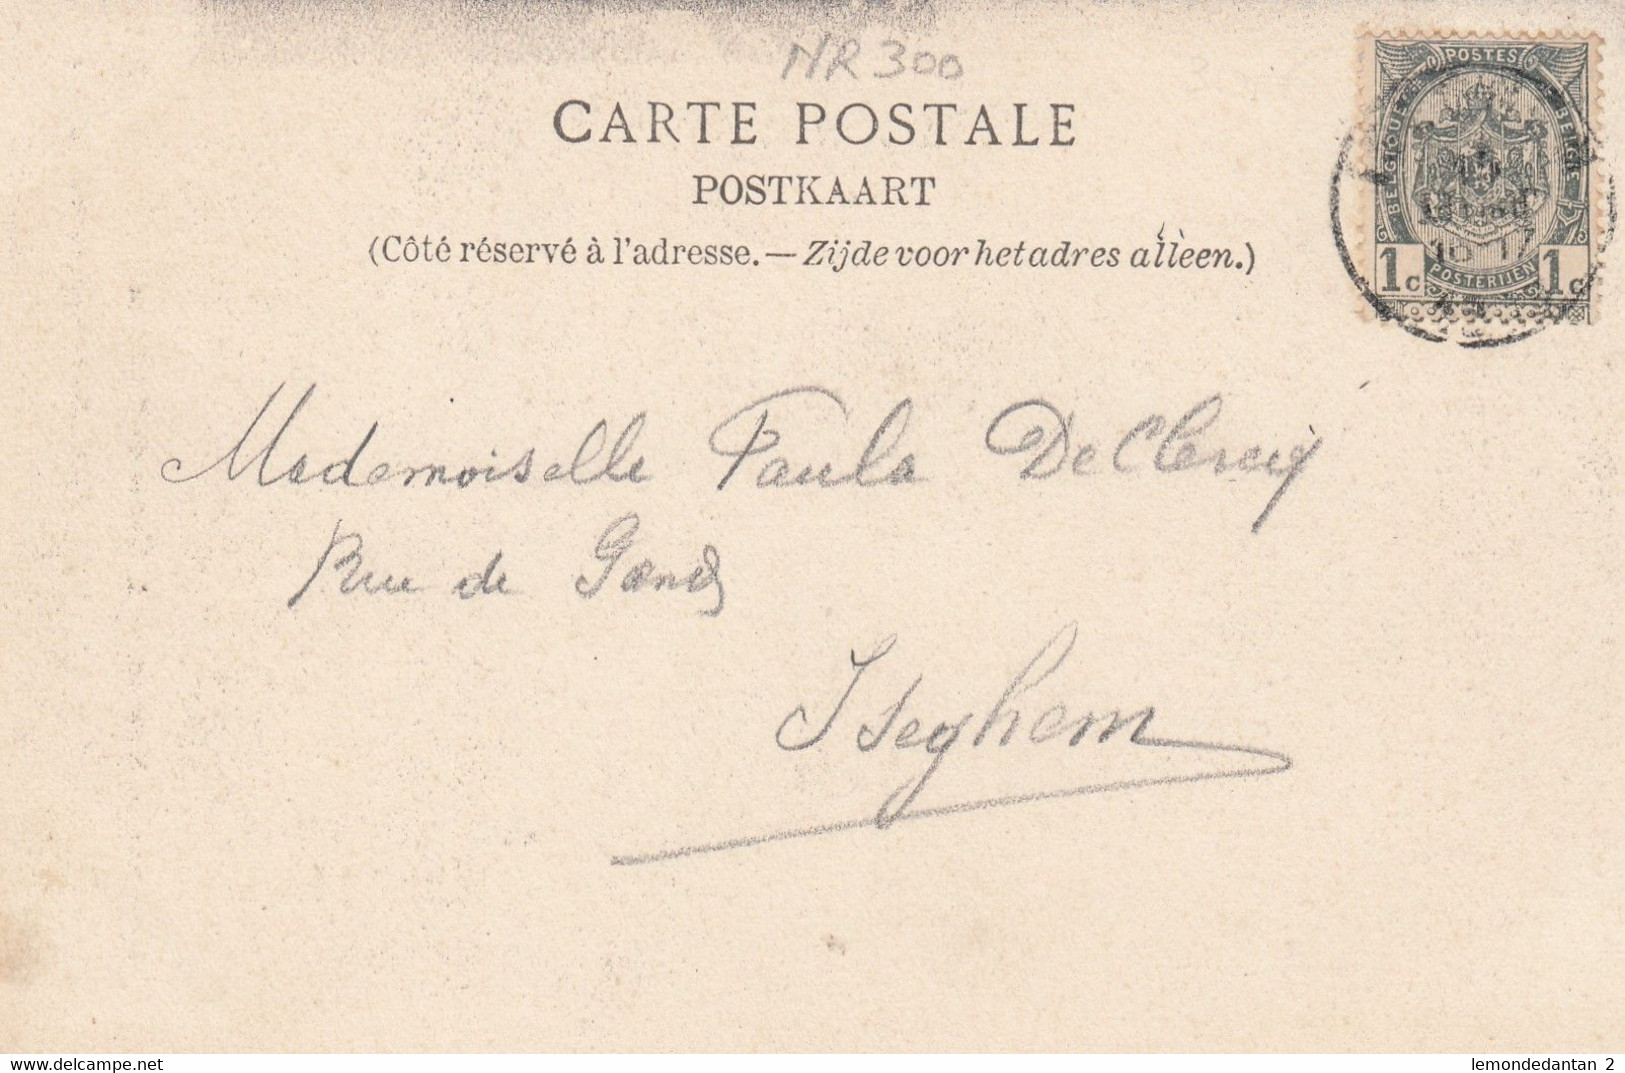 NR 300
CARTE POSTALE
POSTKAART
(Côté réservé à l'adresse.—Zijde voor het adres alleen.)
POSTES
BELGIQUE
BELGIE
1c POSTERIJEN 1c
Mademoiselle Paula DeClercq
Rue de Gand
Iseghem
www.delcampe.net
lemondedantan 2